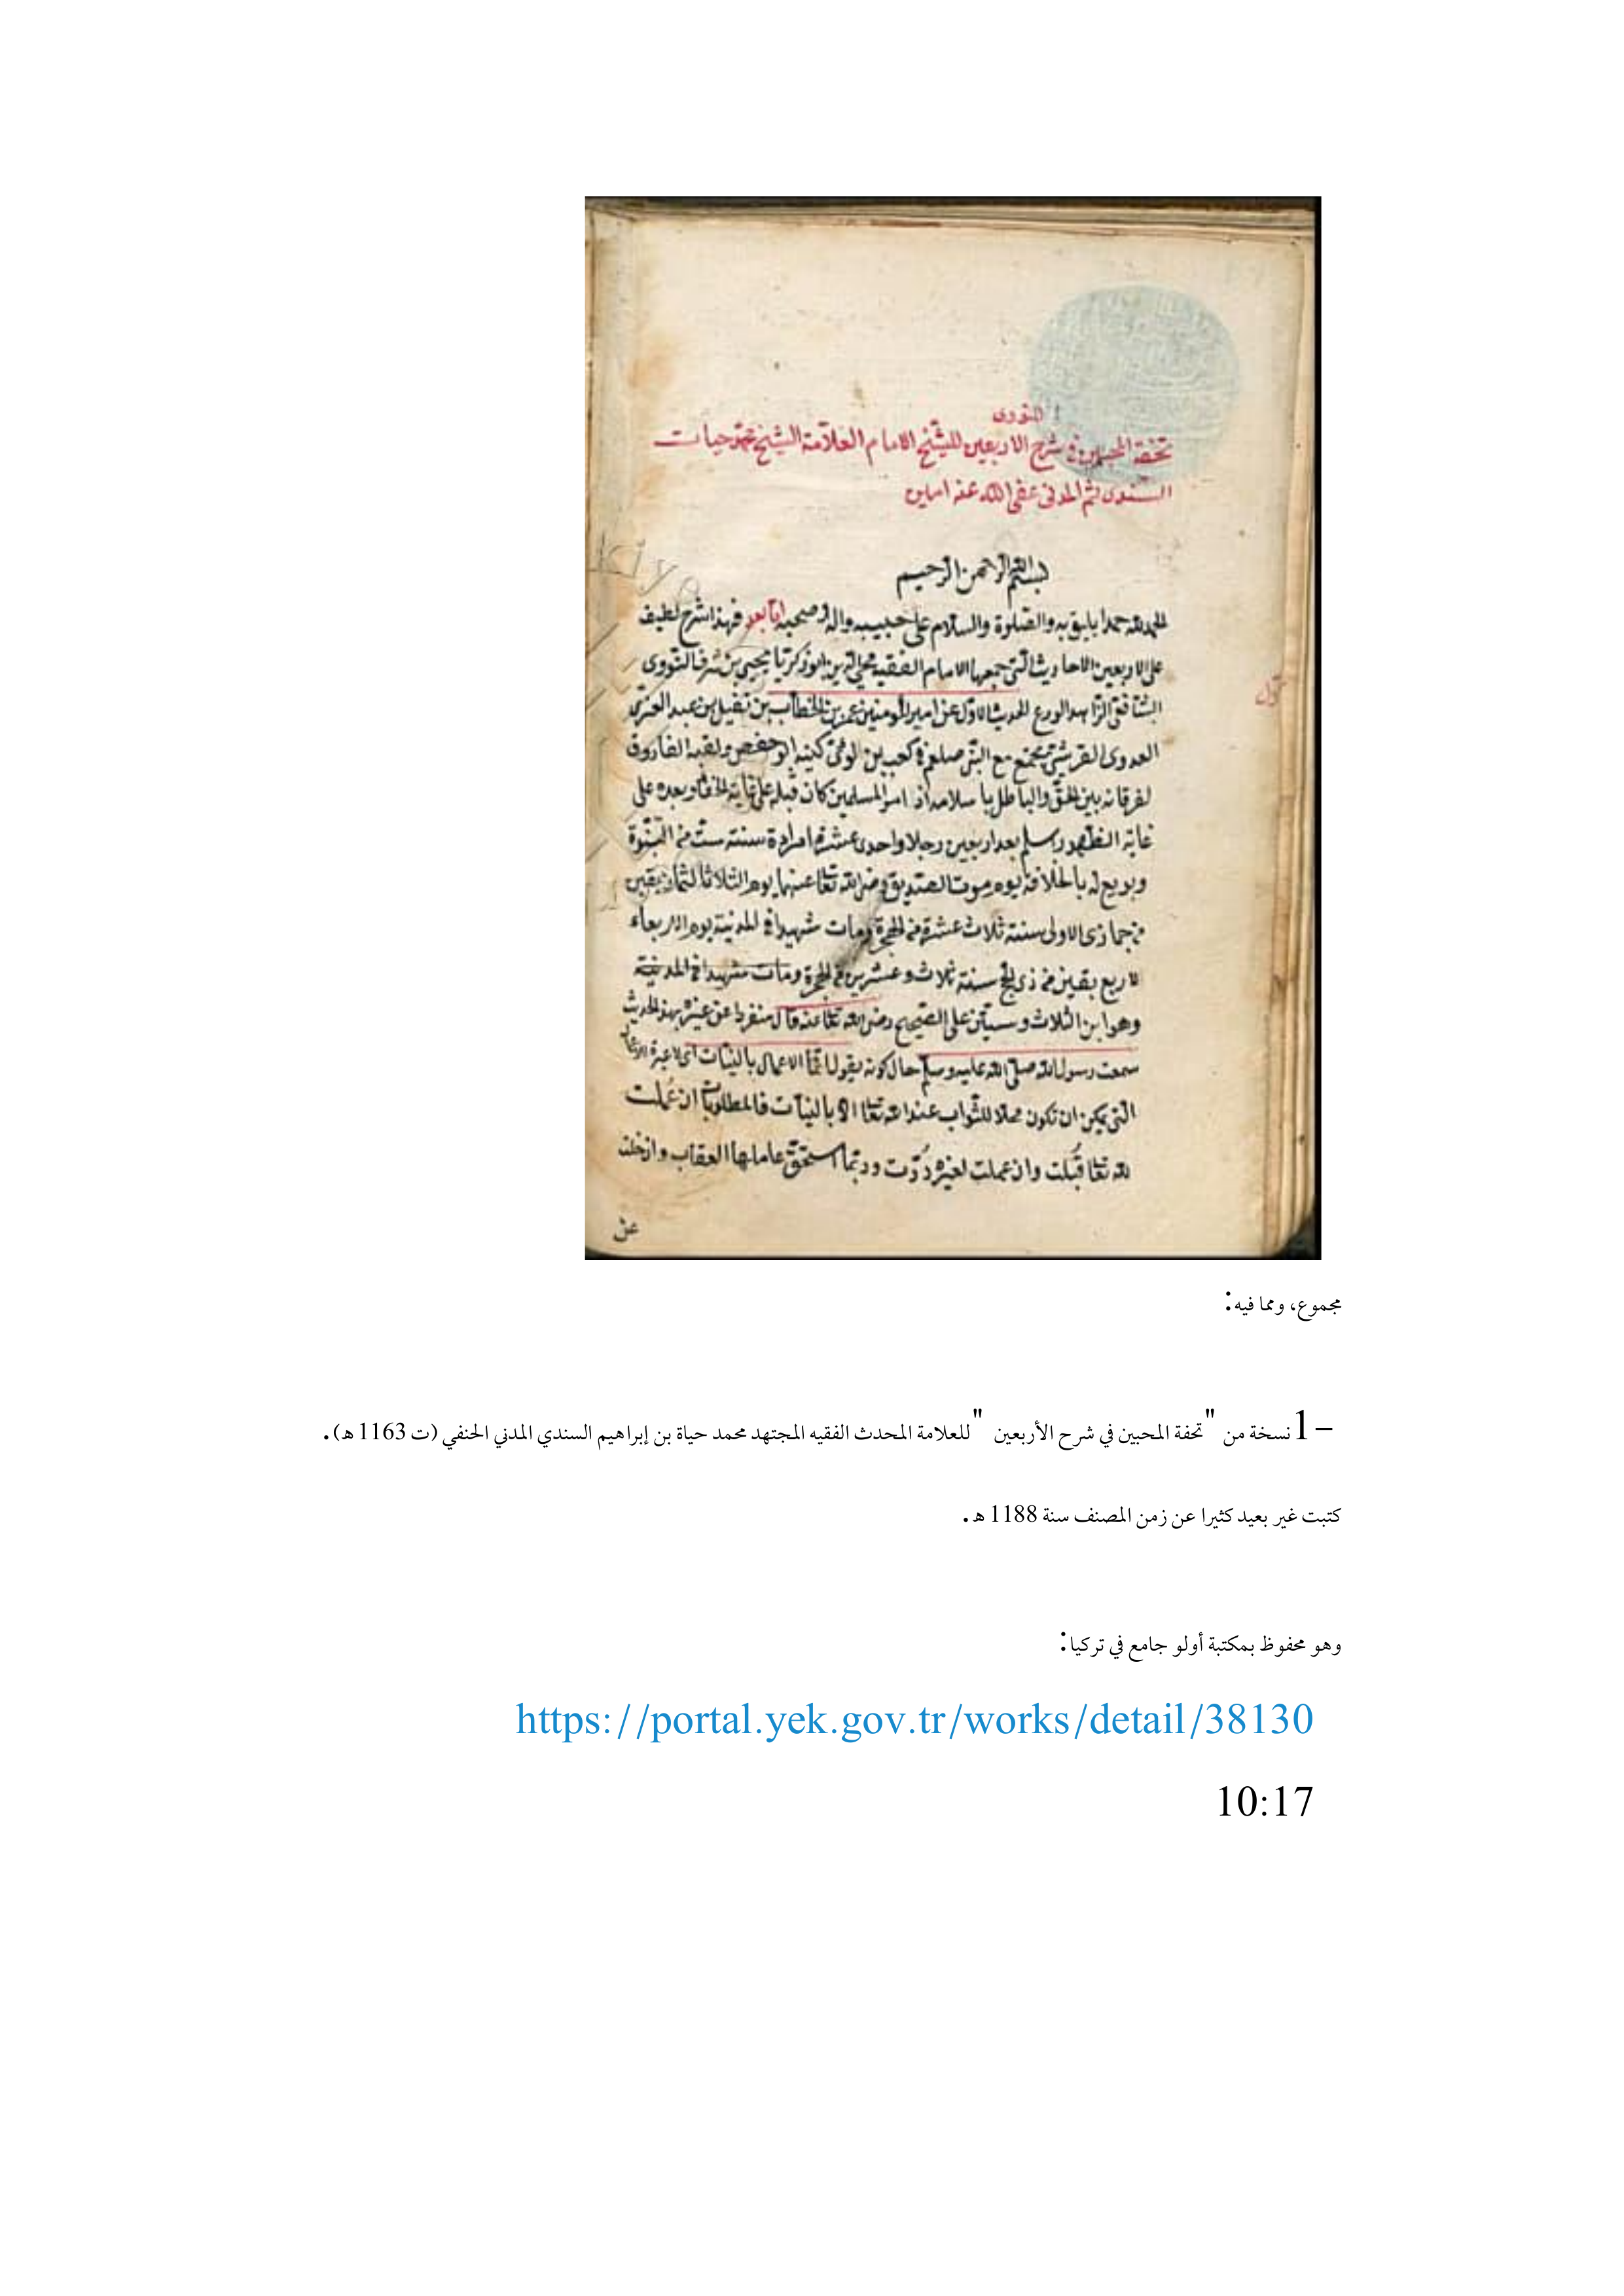 النووى
تحفة المحبين فى شرح الاربعين للشيخ الامام العلامة الشيخ محمد حيات
السندى ثم المدنى عفى الله عنه امين
بسم الله الرحمن الرحيم
الحمد لله حمدا يليق به والصلوة والسلام على حبيبه واله وصحبه اما بعد فهذا شرح لطيف
على الاربعين الاحاديث التى جمعها الامام الفقيه محيى الدين ابو زكريا يحيى بن شرف النووى
الشافعى الزاهد الورع الحديث الاول عن امير المومنين عمر بن الخطاب بن نفيل بن عبد العزى
العدوى القرشى يجتمع مع النبى صلعم فى كعب بن لوى كنيته ابو حفص ولقبه الفاروق
لفرقانه بين الحق والباطل باسلامه اذ امر المسلمين كان قبله على غاية الخفاء وبعده على
غاية الظهور اسلم بعد اربعين رجلا واحدى عشرة امراة سنة ست من النبوة
وبويع له بالخلافة يوم موت الصديق رضى الله تعا عنهما يوم الثلاثا لثمان بقين
من جماذى الاولى سنة ثلاث عشرة من الهجرة ومات شهيدا فى المدنية يوم الاربعاء
لاربع بقين من ذى الحج سنة ثلاث وعشرين من الهجرة ومات شهيدا فى المدنية
وهو ابن الثلاث وستين على الصحيح رضى الله تعا عنه قال منفردا عن غيره بهذا الحديث
سمعت رسول الله صلى الله عليه وسلم حال كونه يقول انما الاعمال بالنيات اى لا عبرة الاعمال
التى يمكن ان تكون محلا للثواب عند الله تعا الا بالنيات فالمطلوبات ان عُملت
لله تعا قُبلت وان عملت لغيره رُدّت وربما استحق عاملها العقاب وان خلت
عن
مجموع، ومما فيه:
1– نسخة من "تحفة المحبين في شرح الأربعين" للعلامة المحدث الفقيه المجتهد محمد حياة بن إبراهيم السندي المدني الحنفي (ت 1163 هـ).
كتبت غير بعيد كثيرا عن زمن المصنف سنة 1188 هـ.
وهو محفوظ بمكتبة أولو جامع في تركيا:
https://portal.yek.gov.tr/works/detail/38130
10:17